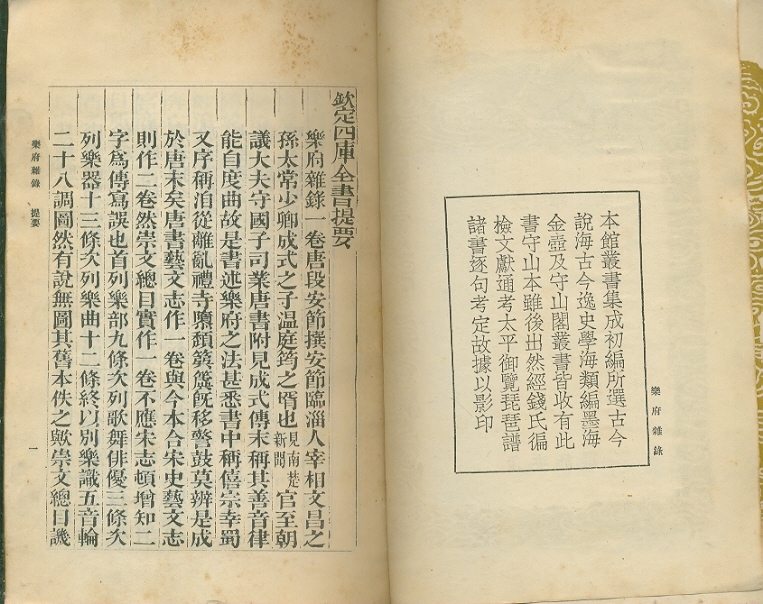 樂府雜錄
本館叢書集成初編所選古今
說海古今逸史學海類編墨海
金壺及守山閣叢書皆收有此
書守山本雖後出然經錢氏徧
檢文獻通考太平御覽琵琶譜
諸書逐句考定故據以影印
欽定四庫全書提要
樂府雜錄一卷唐段安節撰安節臨淄人宰相文昌之
孫太常少卿成式之子温庭筠之壻也見南楚新聞官至朝
議大夫守國子司業唐書附見成式傳末稱其善音律
能自度曲故是書述樂府之法甚悉書中稱僖宗幸蜀
又序稱洎從離亂禮寺隳頹簨簴旣移警鼓莫辨是成
於唐末矣唐書藝文志作一卷與今本合宋史藝文志
則作二卷然崇文總目實作一卷不應宋志頓增知二
字爲傳寫誤也首列樂部九條次列歌舞俳優三條次
列樂器十三條次列樂曲十二條終以別樂識五音輪
二十八調圖然有說無圖其舊本佚之歟崇文總目譏
樂府雜錄 提要
一